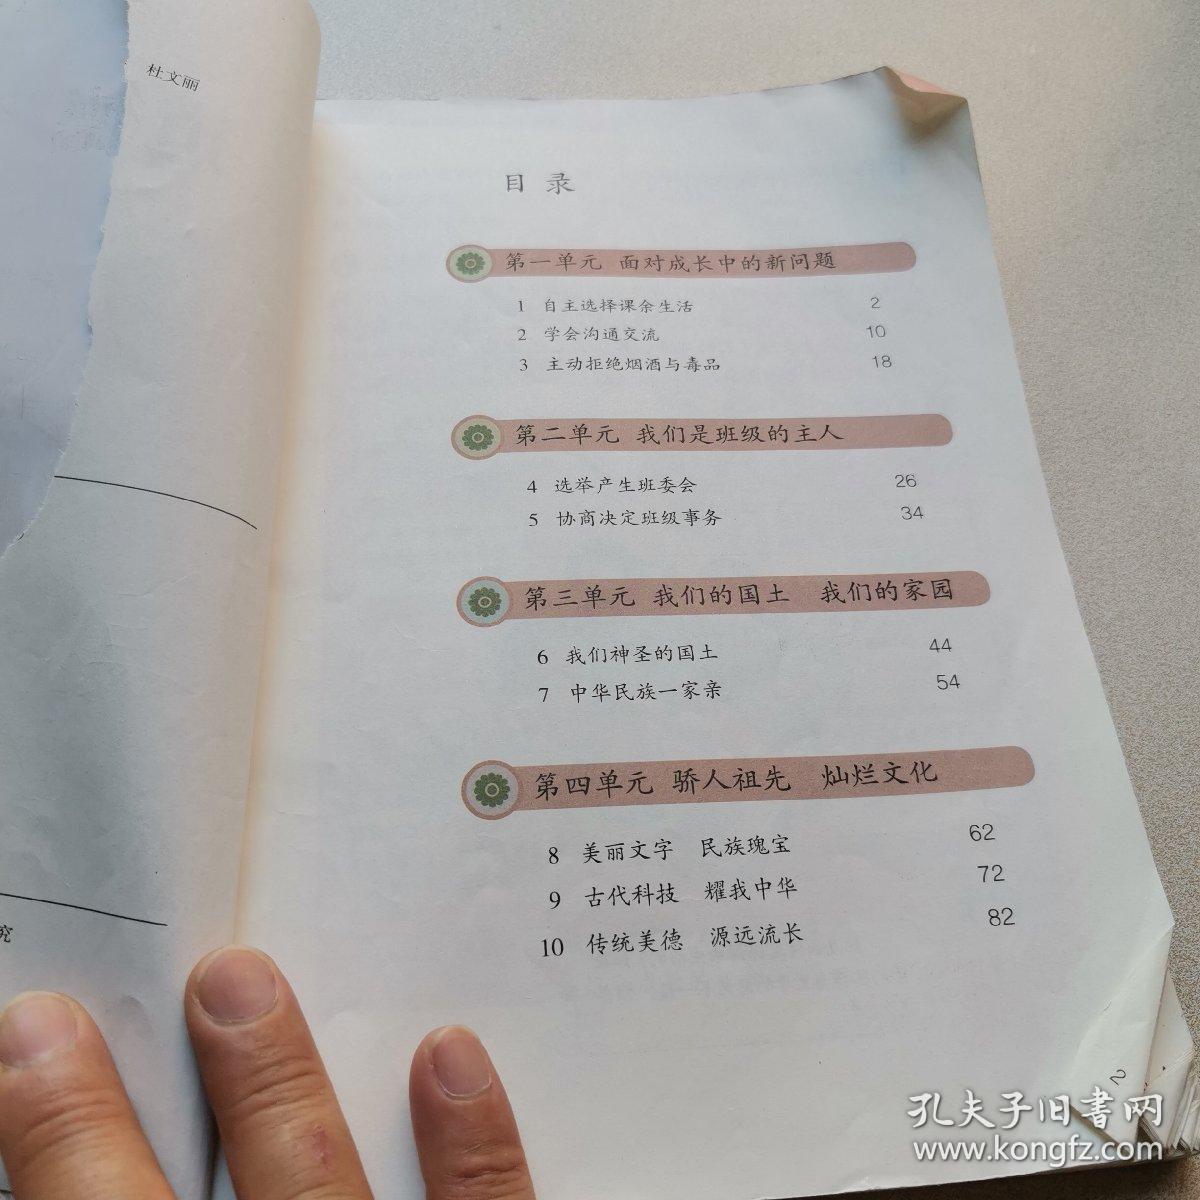 杜文丽
究
目录
第一单元 面对成长中的新问题
1 自主选择课余生活 2
2 学会沟通交流 10
3 主动拒绝烟酒与毒品 18
第二单元 我们是班级的主人
4 选举产生班委会 26
5 协商决定班级事务 34
第三单元 我们的国土 我们的家园
6 我们神圣的国土 44
7 中华民族一家亲 54
第四单元 骄人祖先 灿烂文化
8 美丽文字 民族瑰宝 62
9 古代科技 耀我中华 72
10 传统美德 源远流长 82
2
孔夫子旧书网
www.kongfz.com